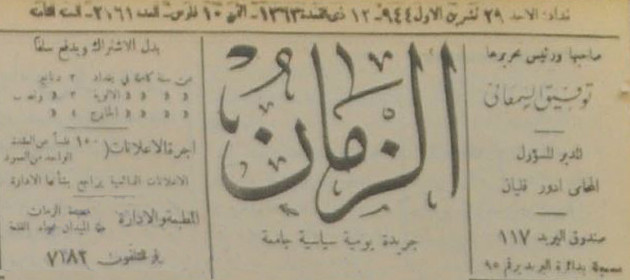 بغداد: الاحد ٢٩ تشرين الاول ٩٤٤ - ١٢ ذي القعدة ١٣٦٣ - الثمن ١٠ فلوس - العدد ٢١٦١ - السنة الثامنة
صاحبها ورئيس تحريرها
توفيق السمعاني
المدير المسؤول
المحامي ادور قليان
صندوق البريد ١١٧
مسجلة بدائرة البريد برقم ٩٥
الزمان
جريدة يومية سياسية جامعة
بدل الاشتراك ويدفع سلفا
عن سنة كاملة في بغداد ٢ دنانير
« « « الالوية ٢ « ونصف
« « « الخارج ٤ «
اجرة الاعلانات (١٥٠ فلساً عن العقدة الواحد من العمود
الاعلانات المالية يراجع بشأنها الادارة
المطبعة والادارة
رقم التلفون ٧١٨٢